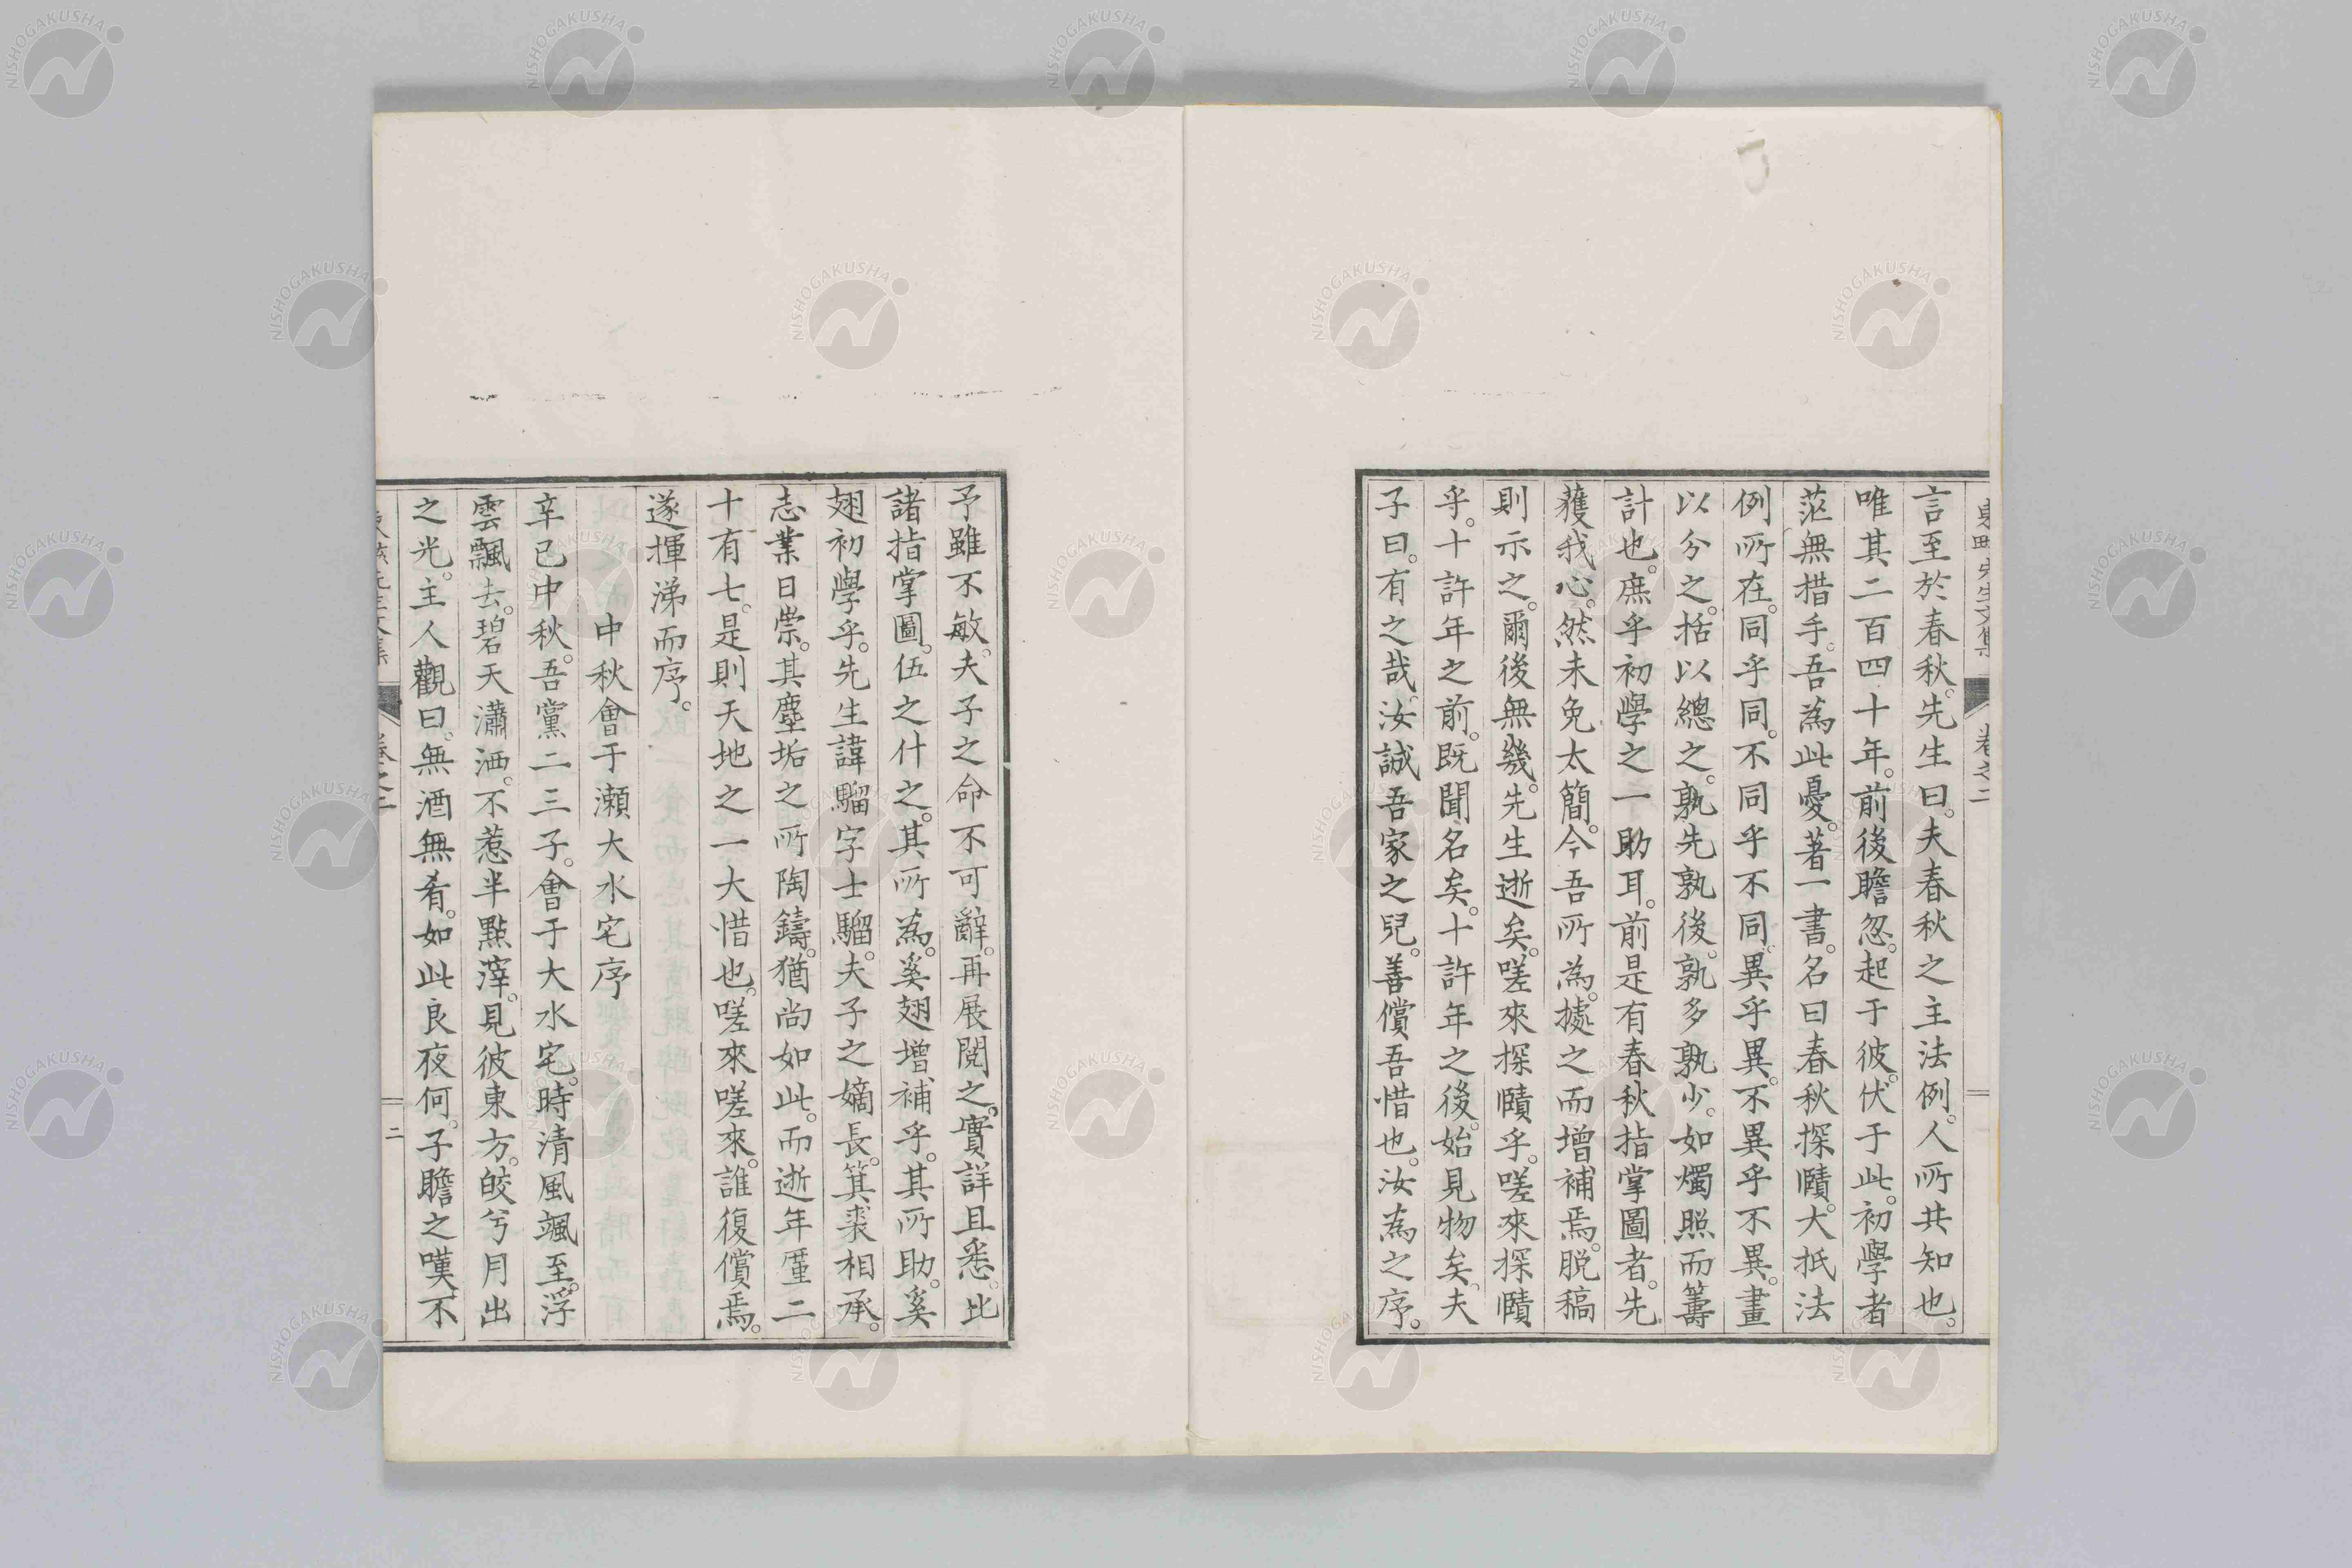 言至於春秋。先生曰。夫春秋之主法例。人所共知也。
唯其二百四十年。前後瞻忽。起于彼。伏于此。初學者
茫無措手。吾為此憂。著一書。名曰春秋探賾。大抵法
例所在。同乎同。不同乎不同。異乎異。不異乎不異。畫
以分之。括以總之。孰先孰後。孰多孰少。如燭照而籌
計也。庶乎初學之一助耳。前是有春秋指掌圖者。先
獲我心。然未免太簡。今吾所為。據之而增補焉。脱稿
則示之。爾後無幾。先生逝矣。嗟來探賾乎。嗟來探賾
乎。十許年之前。既聞名矣。十許年之後。始見物矣。夫
子曰。有之哉。汝誠吾家之兒。善償吾惜也。汝為之序。
予雖不敏。夫子之命不可辭。再展閱之。實詳且悉。比
諸指掌圖。伍之什之。其所為。奚翅增補乎。其所助。奚
翅初學乎。先生諱騮字士騮。夫子之嫡長。箕裘相承。
志業日崇。其塵垢之所陶鑄。猶尚如此。而逝年厪二
十有七。是則天地之一大惜也。嗟來嗟來。誰復償焉。
遂揮涕而序。
中秋會于瀬大水宅序
辛巳中秋。吾黨二三子。會于大水宅。時清風颯至。浮
雲飄去。碧天瀟洒。不惹半點滓。見彼東方。皎兮月出
之光。主人觀曰。無酒無肴。如此良夜何。子瞻之嘆。不
卷之二
二
NISHOGAKUSHA